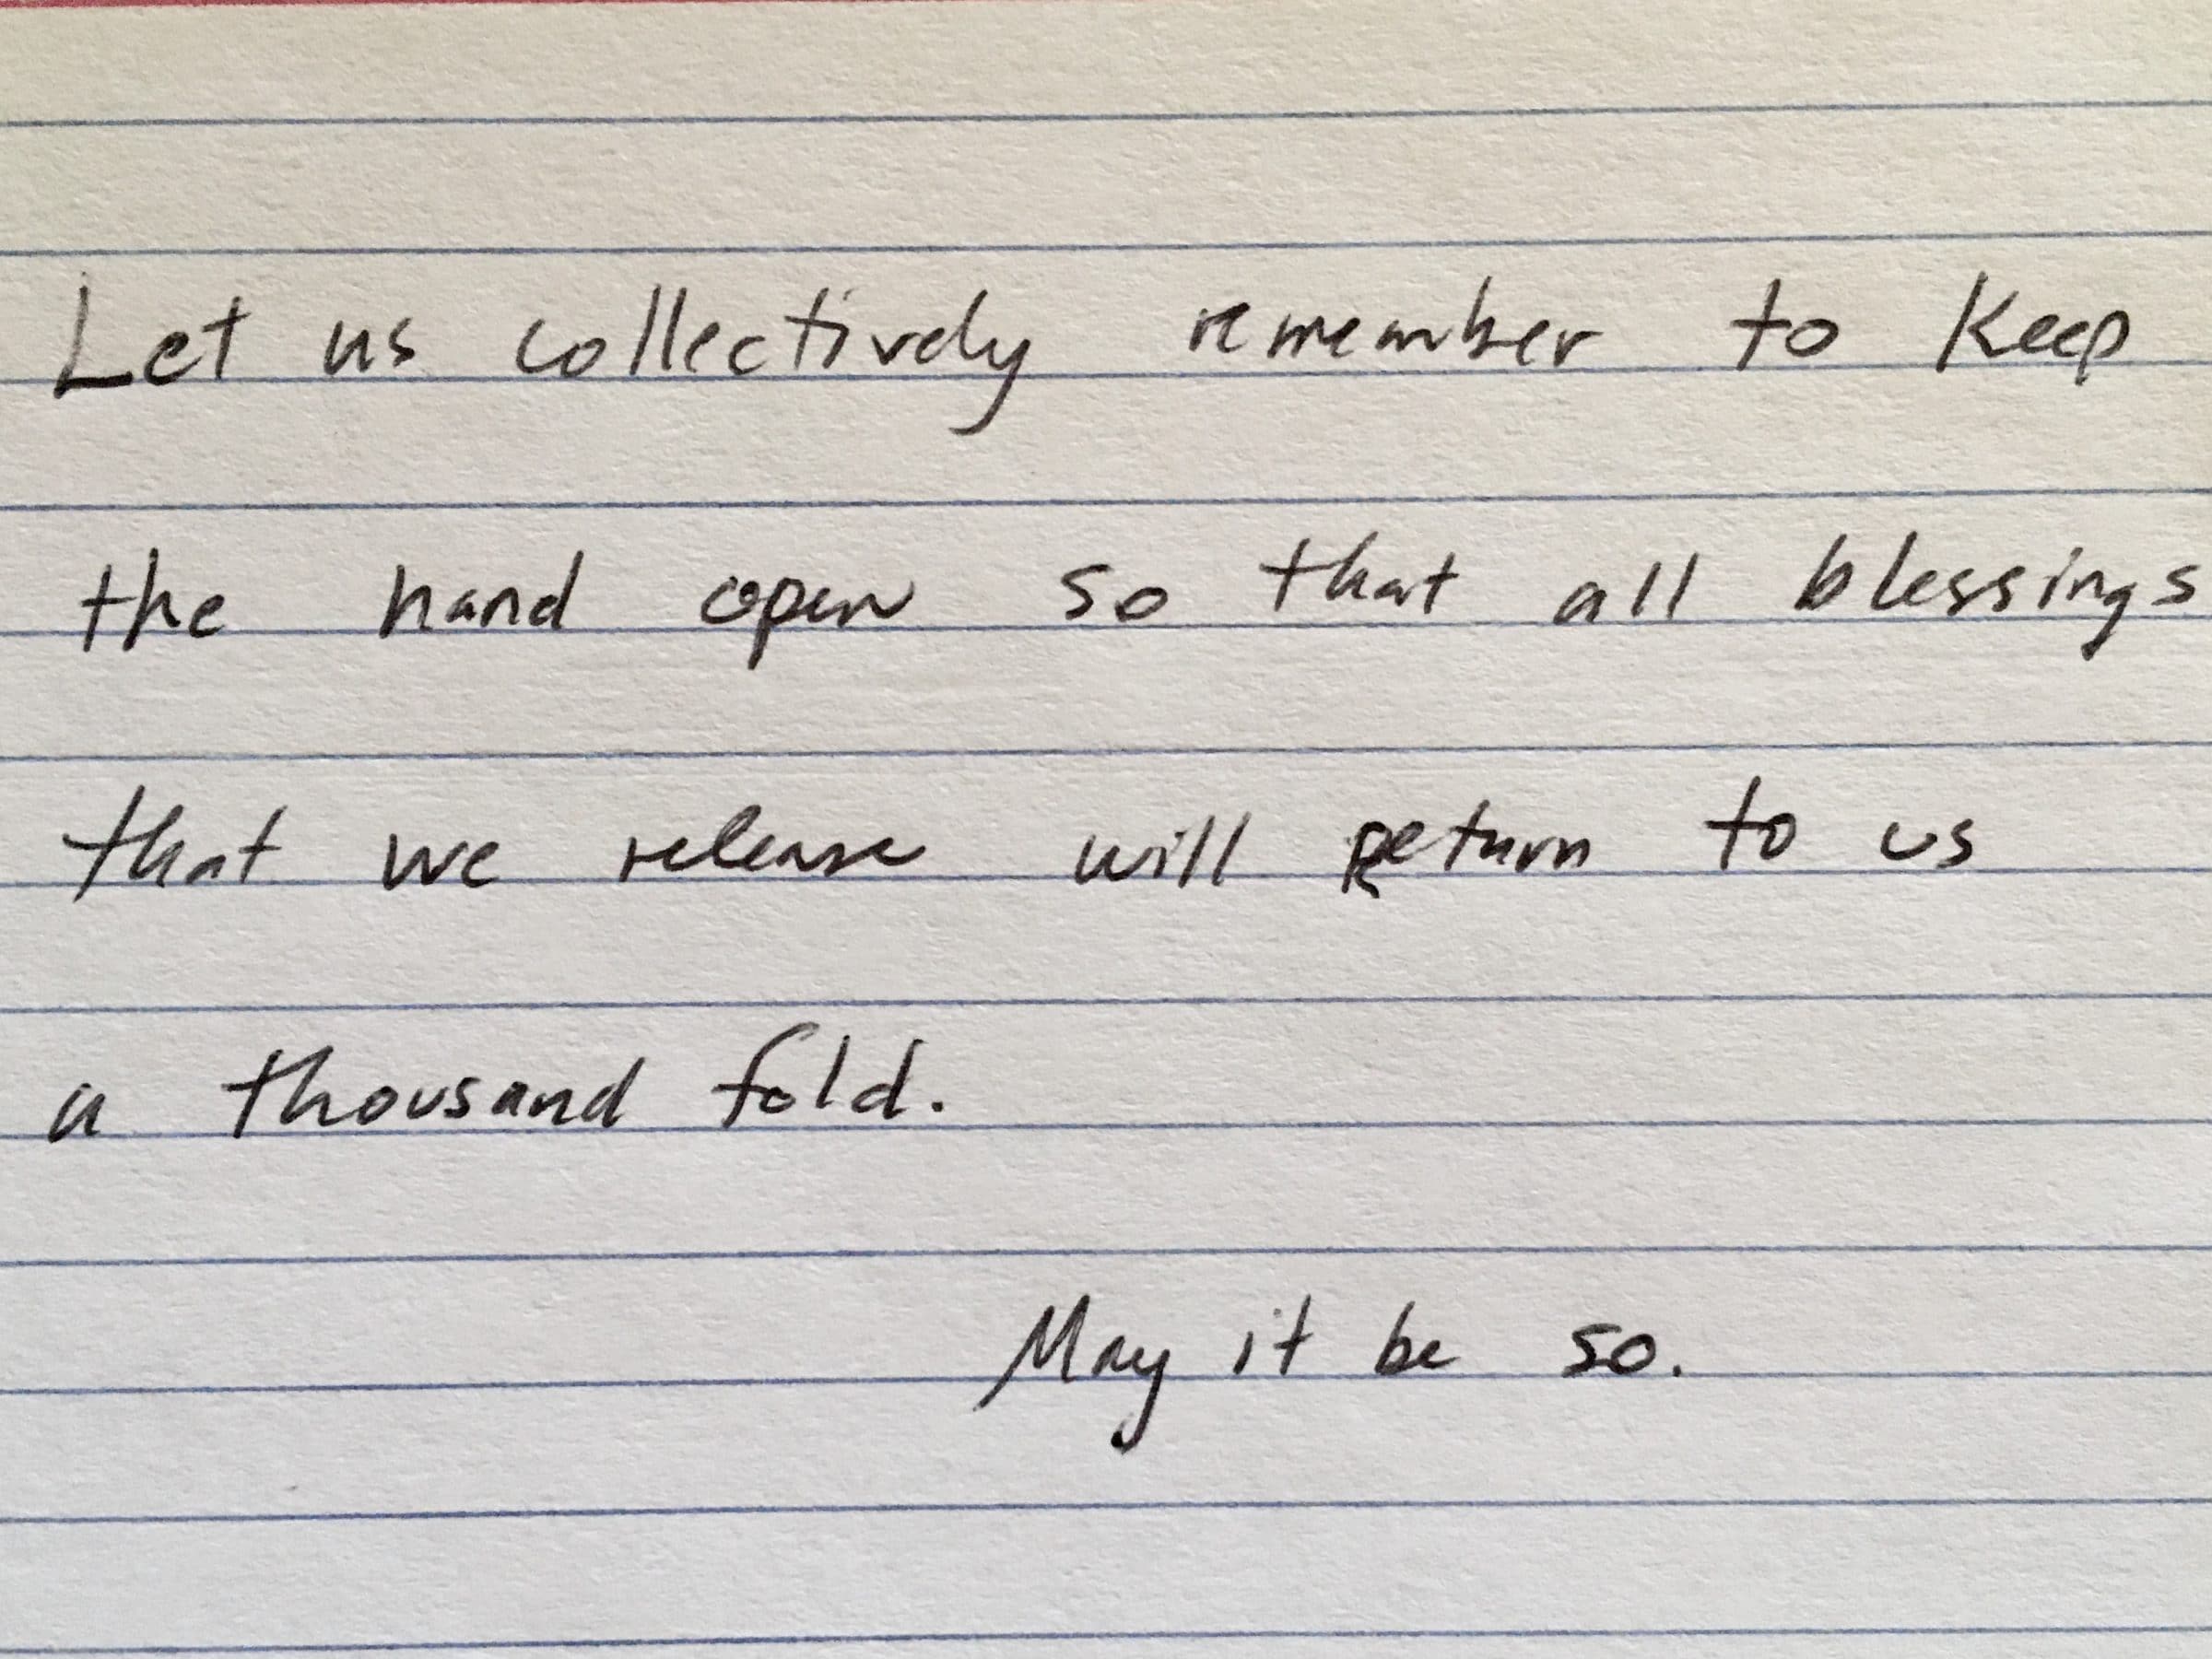 Let us collectively remember to Keep
the hand open so that all blessings
that we release will return to us
a thousand fold.
May it be so.